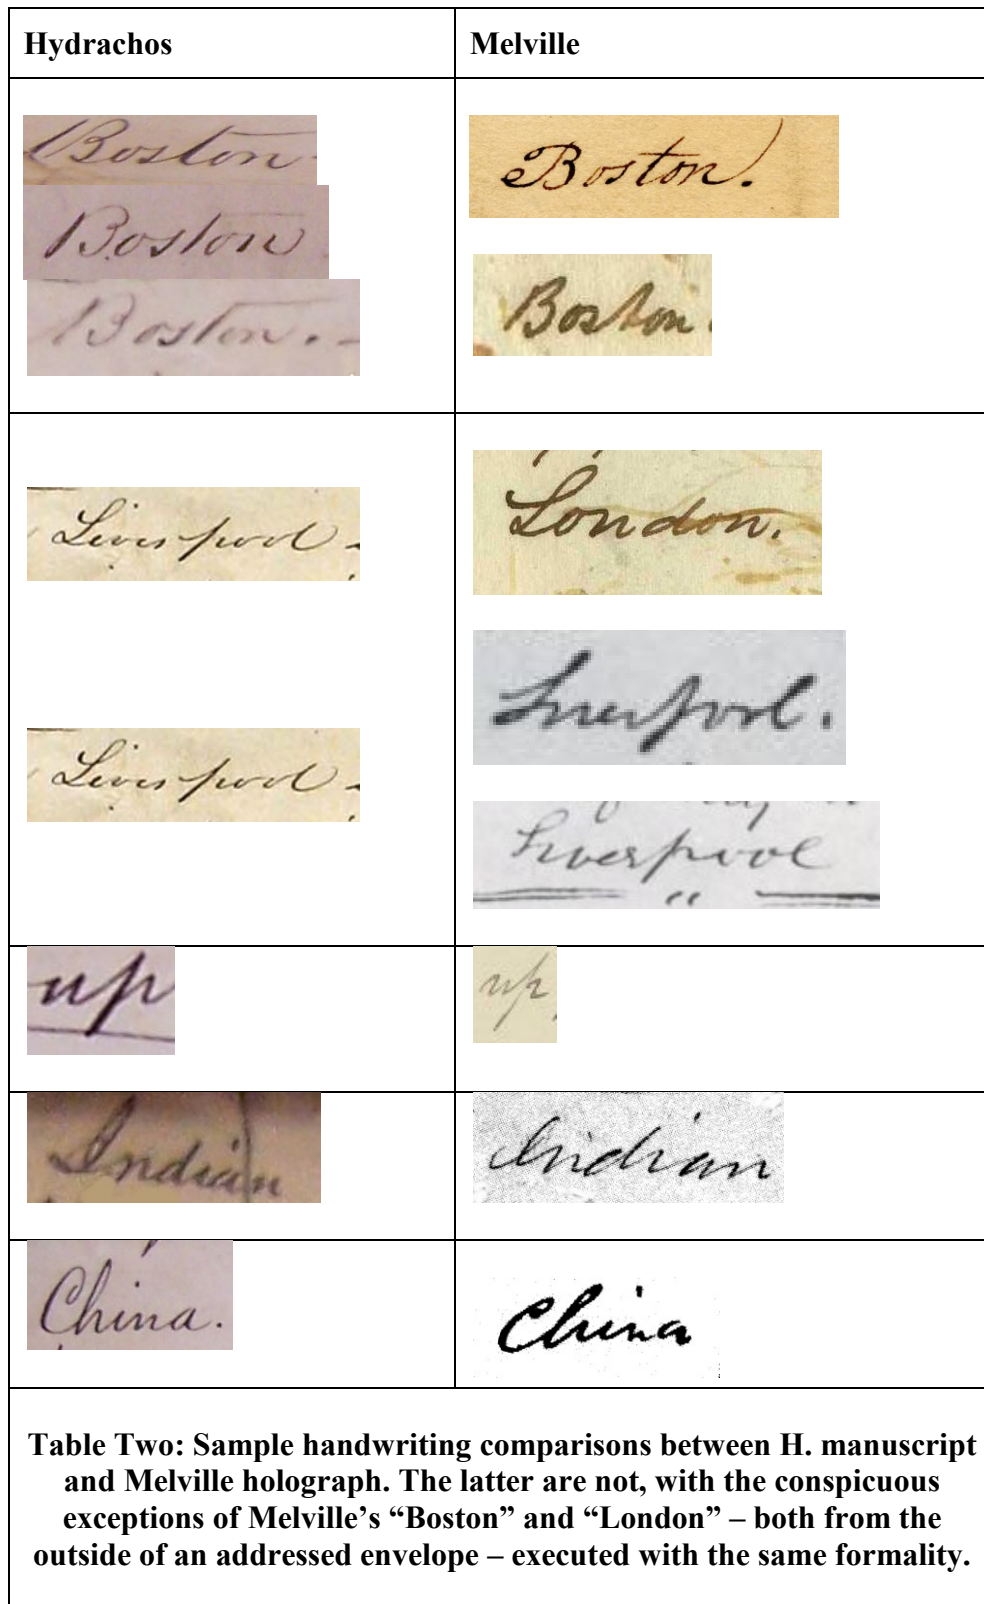 Hydrachos
Melville
Boston
Boston
Boston. -
Boston.
Boston.
Liverpool -
Liverpool -
London.
Liverpool.
Liverpool
up
up,
Indian
Indian
China.
China
Table Two: Sample handwriting comparisons between H. manuscript
and Melville holograph. The latter are not, with the conspicuous
exceptions of Melville’s “Boston” and “London” – both from the
outside of an addressed envelope – executed with the same formality.